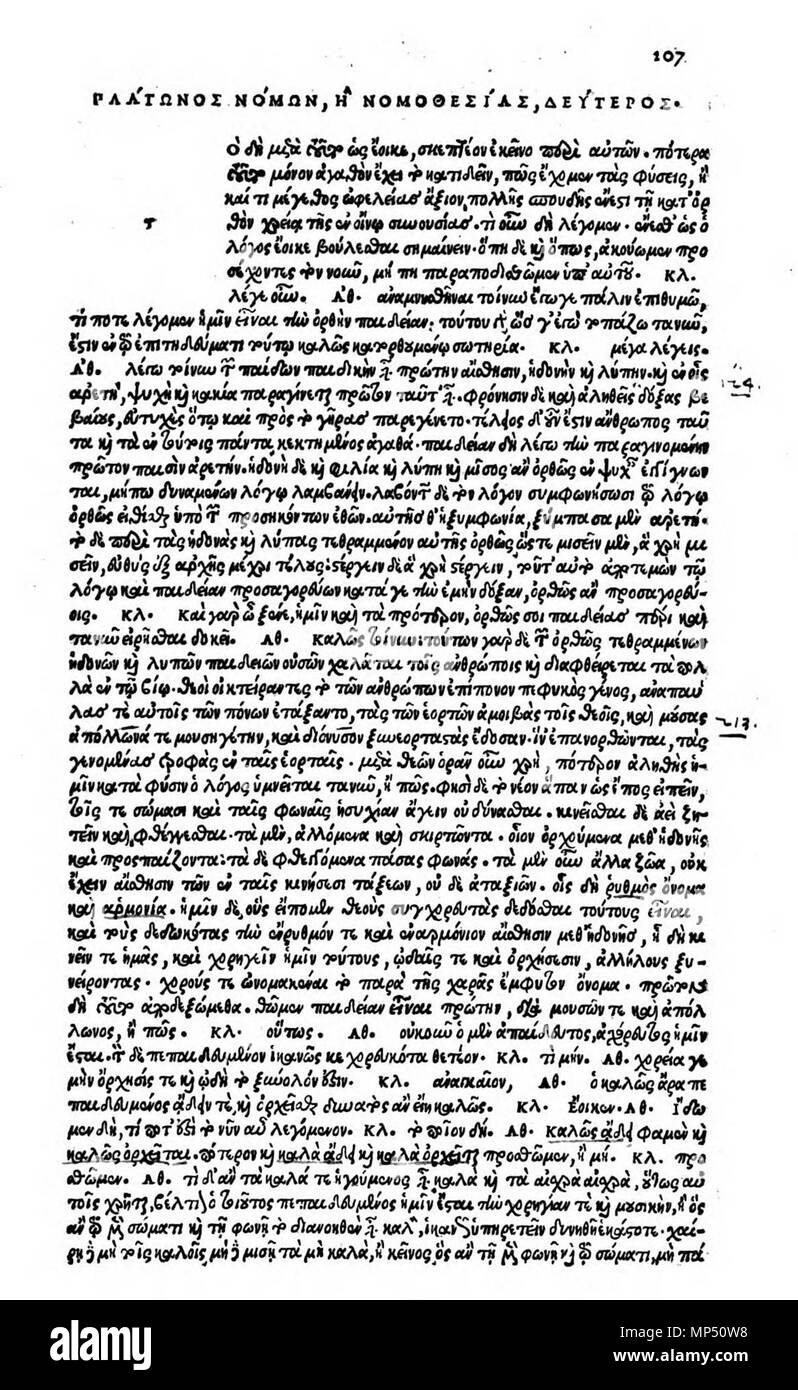 107
ΠΛΑΤΩΝΟΣ ΝΟΜΩΝ, Ἢ ΝΟΜΟΘΕΣΙΑΣ, ΔΕΥΤΕΡΟΣ.
Ὁ δὴ μετὰ τοῦτο ὡς ἔοικε, σκεπτέον ἐκεῖνο περὶ αὐτῶν. πότερα
τοῦτο μόνον ἀγαθὸν ἔχει τὸ κατιδεῖν, πῶς ἔχομεν τὰς φύσεις, ἢ
καί τι μέγεθος ὠφελείας ἄξιον πολλῆς σπουδῆς ἔνεστι τῇ κατ' ὀρ
τ
θὸν χρείᾳ τῆς ἐν οἴνῳ συνουσίας. τί οὖν δὴ λέγομεν. ἔνεσθ' ὡς ὁ
λόγος ἔοικε βούλεσθαι σημαίνειν. ὅπη δὲ καὶ ὅπως, ἀκούωμεν προ
σέχοντες τὸν νοῦν, μή πη παραποδισθῶμεν ὑπ' αὐτοῦ. ΚΛ.
λέγε οὖν. ΑΘ. ἀναμνησθῆναι τοίνυν ἔγωγε πάλιν ἐπιθυμῶ,
τί ποτε λέγομεν ἡμῖν εἶναι τὴν ὀρθὴν παιδείαν. τούτου γὰρ ὥς γ' ἐγὼ τοπάζω τανῦν,
ἔστιν ἐν τῷ ἐπιτηδεύματι τούτῳ καλῶς κατορθουμένῳ σωτηρία. ΚΛ. μέγα λέγεις.
ΑΘ. λέγω τοίνυν τῶν παίδων παιδικὴν εἶναι πρώτην αἴσθησιν, ἡδονὴν καὶ λύπην. καὶ ἐν οἷς
124.
ἀρετὴ, ψυχῇ καὶ κακία παραγίνεται πρῶτον ταῦτ' εἶναι. φρόνησιν δὲ καὶ ἀληθεῖς δόξας βε
βαίους, εὐτυχὲς ὅτῳ καὶ πρὸς τὸ γῆρας παρεγένετο. τέλεος δ' οὖν ἔστιν ἄνθρωπος ταῦ
τα καὶ τὰ ἐν τούτοις πάντα κεκτημένος ἀγαθά. παιδείαν δὴ λέγω τὴν παραγινομένην
πρῶτον παισὶν ἀρετήν. ἡδονὴ δὲ καὶ φιλία καὶ λύπη καὶ μῖσος ἂν ὀρθῶς ἐν ψυχαῖς ἐγγίγνων
ται, μήπω δυναμένων λόγῳ λαμβάνειν. λαβόντων δὲ τὸν λόγον συμφωνήσωσι τῷ λόγῳ
ὀρθῶς εἰθίσθαι ὑπὸ τῶν προσηκόντων ἐθῶν. αὐτῆς θ' ἡ ξυμφωνία, ξύμπασα μὲν ἀρετή.
τὸ δὲ περὶ τὰς ἡδονὰς καὶ λύπας τεθραμμένον αὐτῆς ὀρθῶς ὥστε μισεῖν μὲν, ἃ χρὴ μι
σεῖν, εὐθὺς ἐξ ἀρχῆς μέχρι τέλους: στέργειν δὲ ἃ χρὴ στέργειν, τοῦτ' αὐτὸ ἀποτεμὼν τῷ
λόγῳ καὶ παιδείαν προσαγορεύων κατά γε τὴν ἐμὴν δόξαν, ὀρθῶς ἂν προσαγορεύ-
οις. ΚΛ. καὶ γὰρ ὦ ξένε, ἡμῖν καὶ τὰ πρότερον, ὀρθῶς σοι παιδείας πέρι καὶ
τανῦν εἰρῆσθαι δοκεῖ. ΑΘ. καλῶς τοίνυν: τούτων γὰρ δὲ τῶν ὀρθῶς τεθραμμένων
ἡδονῶν καὶ λυπῶν παιδειῶν οὐσῶν χαλᾶται τοῖς ἀνθρώποις καὶ διαφθείρεται τὰ πολ
λὰ ἐν τῷ βίῳ. θεοὶ οἰκτείραντες τὸ τῶν ἀνθρώπων ἐπίπονον πεφυκὸς γένος, ἀναπαύ
λας τε αὐτοῖς τῶν πόνων ἐτάξαντο, τὰς τῶν ἑορτῶν ἀμοιβὰς τοῖς θεοῖς, καὶ μούσας
213.
ἀπόλλωνά τε μουσηγέτην, καὶ διόνυσον ξυνεορταστὰς ἔδοσαν. ἵν' ἐπανορθῶνται, τὰς
γενομένας τροφὰς ἐν ταῖς ἑορταῖς. μετὰ θεῶν ὁρᾶν οὖν χρὴ, πότερον ἀληθὴς ἡ-
μῖν κατὰ φύσιν ὁ λόγος ὑμνεῖται τανῦν, ἢ πῶς. φησὶ δὲ τὸ νέον ἅπαν ὡς ἔπος εἰπεῖν,
τοῖς τε σώμασι καὶ ταῖς φωναῖς ἡσυχίαν ἄγειν οὐ δύνασθαι. κινεῖσθαι δὲ ἀεὶ ζη-
τεῖν καὶ φθέγγεσθαι. τὰ μὲν, ἁλλόμενα καὶ σκιρτῶντα. οἷον ὀρχούμενα μεθ' ἡδονῆς
καὶ προσπαίζοντα: τὰ δὲ φθεγγόμενα πάσας φωνάς. τὰ μὲν οὖν ἄλλα ζῶα, οὐκ
ἔχειν αἴσθησιν τῶν ἐν ταῖς κινήσεσι τάξεων, οὐ δὲ ἀταξιῶν. οἷς δὴ ῥυθμὸς ὄνομα
καὶ ἁρμονία. ἡμῖν δὲ, οὓς εἴπομεν θεοὺς συγχορευτὰς δεδόσθαι τούτους εἶναι,
καὶ τοὺς δεδωκότας τὴν ἔνρυθμόν τε καὶ ἐναρμόνιον αἴσθησιν μεθ' ἡδονῆς, ᾗ δὴ κι
νεῖν τε ἡμᾶς, καὶ χορηγεῖν ἡμῖν τούτους, ᾠδαῖς τε καὶ ὀρχήσεσιν, ἀλλήλους ξυ-
νείροντας. χορούς τε ὠνομακέναι τὸ παρὰ τῆς χαρᾶς ἔμφυτον ὄνομα. πρῶτον
δὴ τοῦτο ἀποδεξώμεθα. θῶμεν παιδείαν εἶναι πρώτην, διὰ μουσῶν τε καὶ ἀπόλ
λωνος, ἢ πῶς. ΚΛ. οὕτως. ΑΘ. οὐκοῦν ὁ μὲν ἀπαίδευτος, ἀχόρευτος ἡμῖν
ἔσται. τὸν δὲ πεπαιδευμένον ἱκανῶς κεχορευκότα θετέον. ΚΛ. τί μήν. ΑΘ. χορεία γε
μὴν ὄρχησίς τε καὶ ᾠδὴ τὸ ξυνόλον ἐστίν. ΚΛ. ἀναγκαῖον, ΑΘ. ὁ καλῶς ἄρα πε
παιδευμένος ᾄδειν τε, καὶ ὀρχεῖσθαι δυνατὸς ἂν εἴη καλῶς. ΚΛ. ἔοικεν. ΑΘ. ἴδω
μεν δὴ, τί ποτ' ἐστὶ τὸ νῦν αὖ λεγόμενον. ΚΛ. τὸ ποῖον δή. ΑΘ. καλῶς ᾄδει φαμὲν καὶ
καλῶς ὀρχεῖται. πότερον καὶ καλὰ ᾄδει καὶ καλὰ ὀρχεῖται προσθῶμεν, ἢ μή. ΚΛ. προ
σθῶμεν. ΑΘ. τί δ' ἂν τὰ καλά τε ἡγούμενος εἶναι καλὰ καὶ τὰ αἰσχρὰ αἰσχρὰ, οὕτως αὐ
τοῖς χρῆται, βέλτιον ὁ τοιοῦτος πεπαιδευμένος ἡμῖν ἔσται τὴν χορηγίαν τε καὶ μουσικὴν, ἢ ὃς
ἂν τῷ μὲν σώματι καὶ τῇ φωνῇ τὸ διανοηθὲν εἶναι καλὸν, ἱκανῶς ὑπηρετεῖν δυνηθῇ ἑκάστοτε. χαί-
ρῃ δὲ μὴ τοῖς καλοῖς, μὴ δὲ μισῇ τὰ μὴ καλὰ, ἢ κεῖνος ὃς ἂν τῇ μὲν φωνῇ καὶ τῷ σώματι, μὴ πά
alamy
Image ID: MP50W8
www.alamy.com